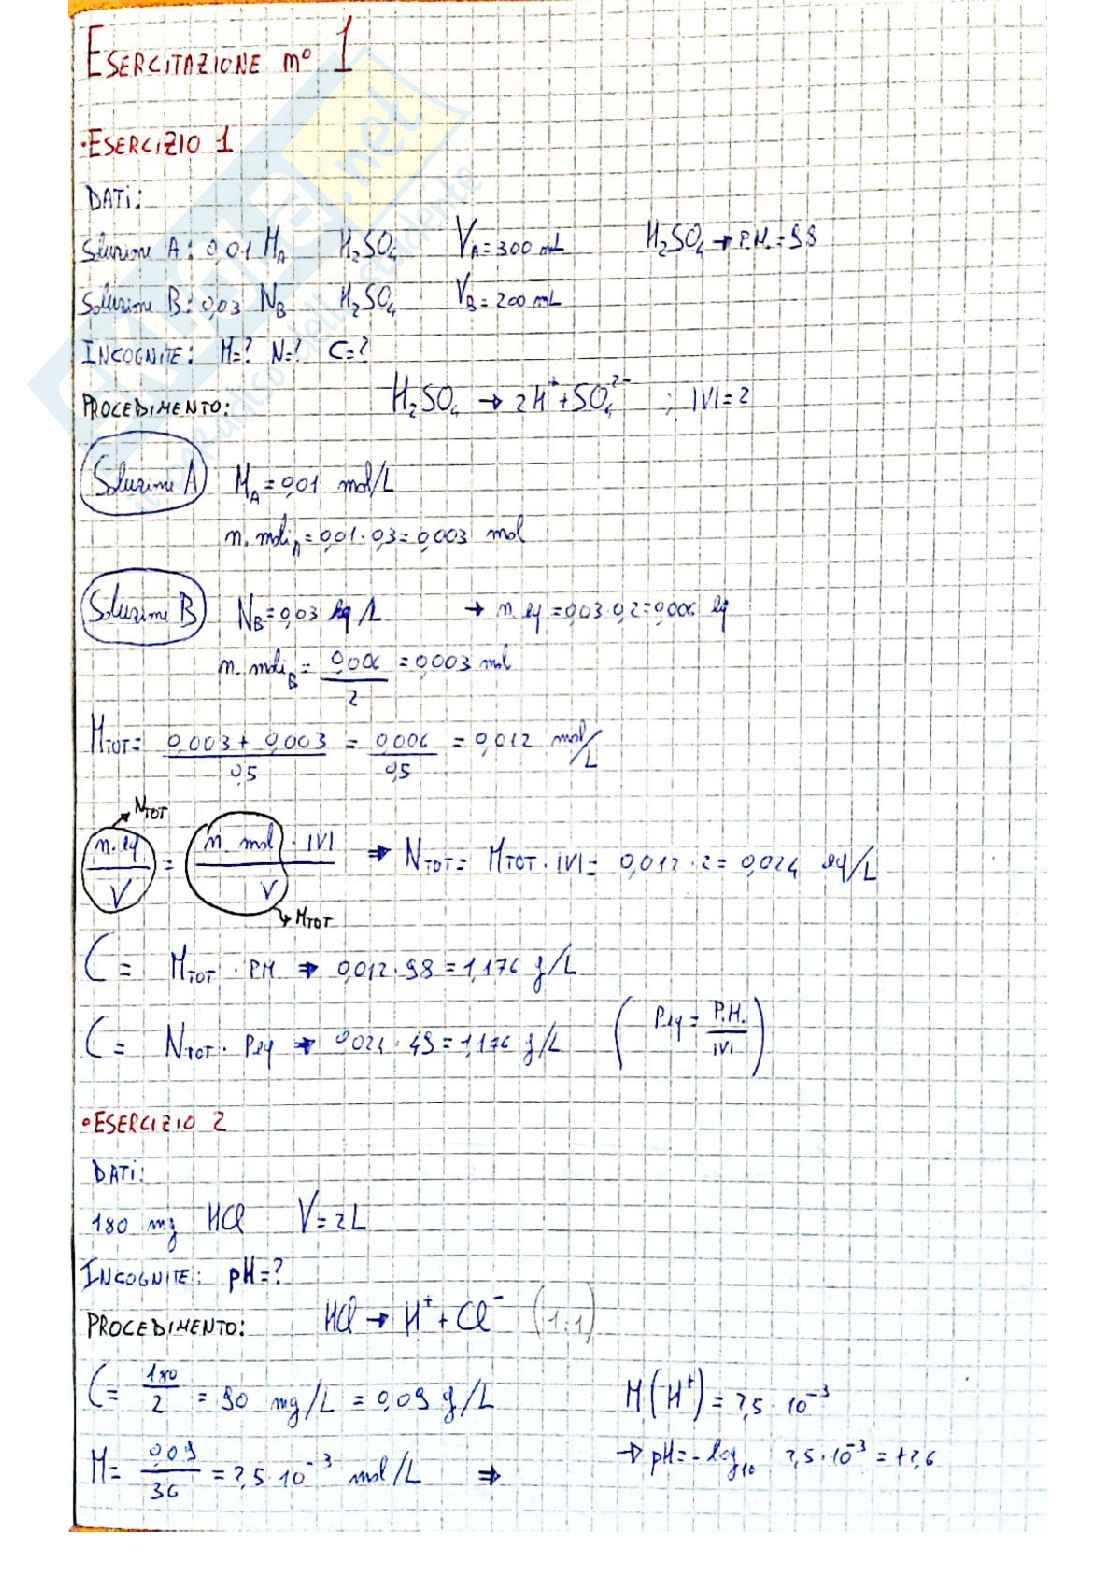 ESERCITAZIONE n° 1
• ESERCIZIO 1
DATI:
Soluzione A: 0,01 M_A H₂SO₄ V_A = 300 mL H₂SO₄ → P.M. = 98
Soluzione B: 0,03 N_B H₂SO₄ V_B = 200 mL
INCOGNITE: M=? N=? C=?
PROCEDIMENTO: H₂SO₄ → 2H⁺ + SO₄²⁻ ; |V| = 2
Soluzione A M_A = 0,01 mol/L
n. moli_A = 0,01 · 0,3 = 0,003 mol
Soluzione B N_B = 0,03 eq/L → n. eq = 0,03 · 0,2 = 0,006 eq
n. moli_B = 0,006 / 2 = 0,003 mol
M_TOT = 0,003 + 0,003 / 0,5 = 0,006 / 0,5 = 0,012 mol/L
N_TOT
n. eq / V = n. mol · |V| / V ⇒ N_TOT = M_TOT · |V| = 0,012 · 2 = 0,024 eq/L
M_TOT
C = M_TOT · PM ⇒ 0,012 · 98 = 1,176 g/L
C = N_TOT · Peq → 0,024 · 49 = 1,176 g/L ( Peq = P.M. / |V| )
• ESERCIZIO 2
DATI:
180 mg HCl V = 2L
INCOGNITE: pH = ?
PROCEDIMENTO: HCl → H⁺ + Cl⁻ (1:1)
C = 180 / 2 = 90 mg/L = 0,09 g/L M(H⁺) = 2,5 · 10⁻³
M = 0,09 / 36 = 2,5 · 10⁻³ mol/L ⇒ → pH = - log₁₀ 2,5 · 10⁻³ = +2,6